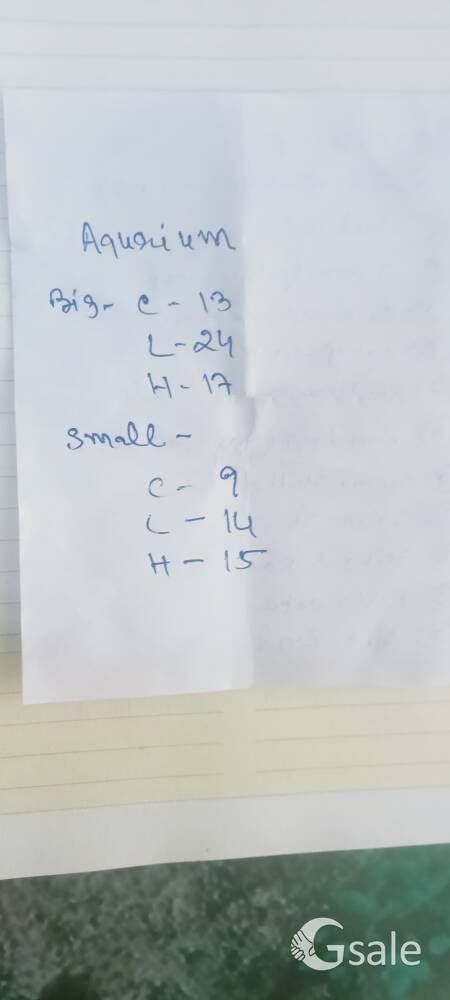 Aqurium
Big- C - 13
L - 24
H - 17
Small -
C - 9
L - 14
H - 15
Gsale